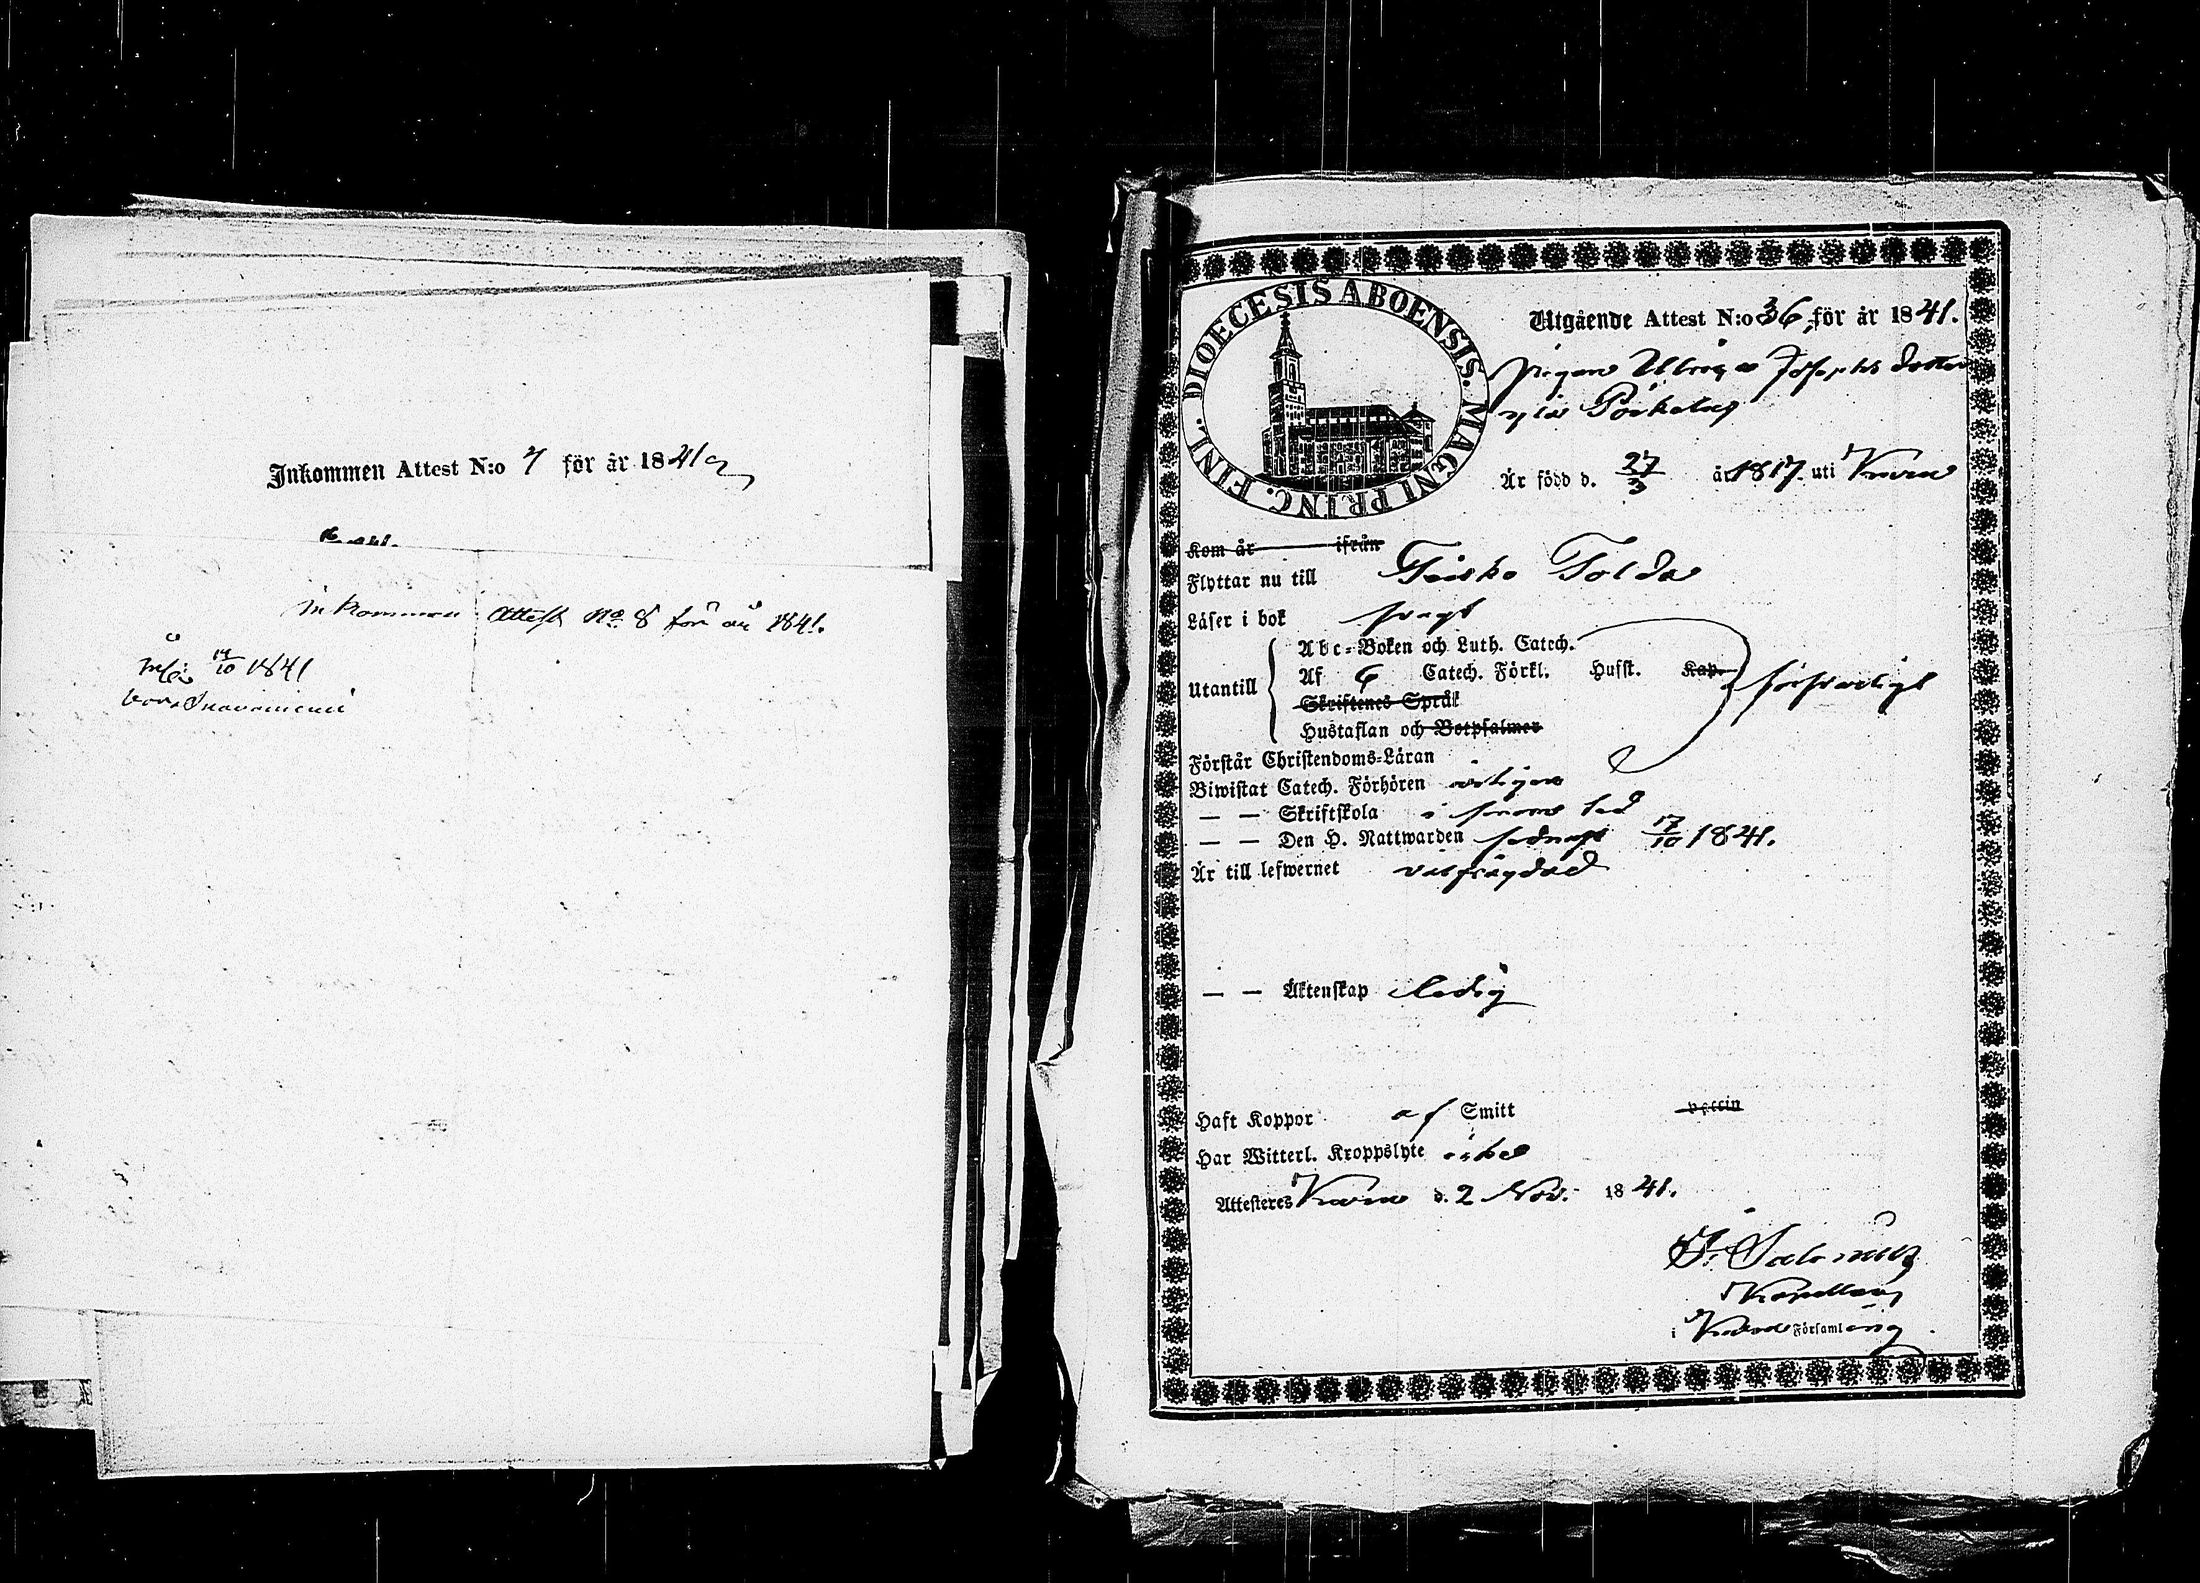 Inkommen Attest N:o 7 för år 1841
Inkommen Attest No 8 för år 1841.
14/10 1841
DIOECESIS ABOENSIS. MAGNI PRINC. FINL.
Utgående Attest N:o 36, för år 1841.
Pigan Ulrica Josephsdotter
Är född d. 27/3 år 1817. uti
Kom år ifrån
Flyttar nu till Teisko
Läser i bok svagt
Utantill
Abc-Boken och Luth. Catech.
Af 6 Catech. Förkl. Husst. Kap.
Skriftenes Språk
Hustaflan och Botpsalmer
försvarligt
Förstår Christendoms-Läran
Biwistat Catech. Förhören årligen
— — Skriftskola i
— — Den H. Nattwarden sednast 17/10 1841.
Är till lefwernet välfrägdad
— — Äktenskap ledig
Haft Koppor af Smitt vaccin
Har Witterl. Kroppslyte icke
Attesteres d. 2 Nov. 1841.
Kapellan
i Församling.